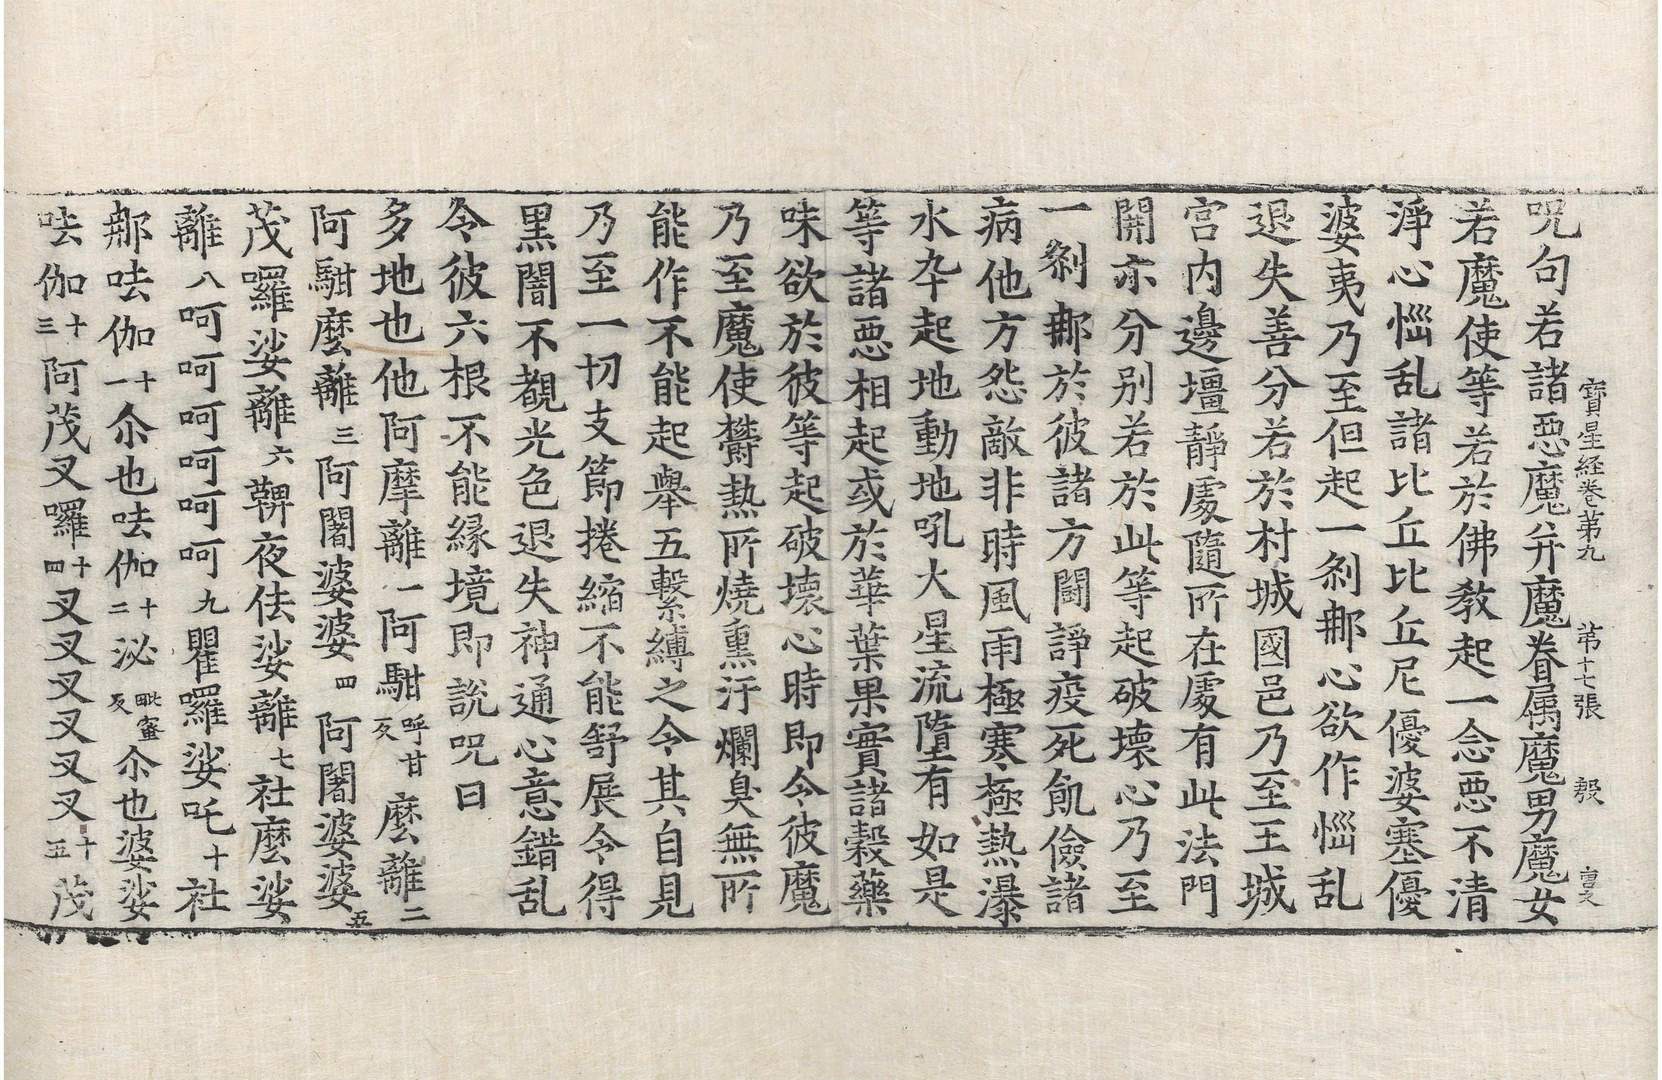 寶星経卷第九　第十七張　㲉
呪句若諸惡魔并魔眷属魔男魔女
若魔使等若於佛教起一念惡不清
淨心惱乱諸比丘比丘尼優婆塞優
婆夷乃至但起一刹那心欲作惱乱
退失善分若於村城國邑乃至王城
宫内邊壃靜處隨所在處有此法門
開示分别若於此等起破壞心乃至
一刹那於彼諸方鬪諍疫死飢儉諸
病他方怨敵非時風雨極寒極熱瀑
水卒起地動地吼火星流墮有如是
等諸惡相起或於華葉果實諸糓藥
味欲於彼等起破壞心時即令彼魔
乃至魔使欝熱所燒熏汙爛臭無所
能作不能起舉五繋縛之令其自見
乃至一切支節捲縮不能舒展令得
黒闇不覩光色退失神通心意錯乱
令彼六根不能縁境即説呪曰
多地也他阿摩離一阿馯呼甘反麽離二
阿馯麽離三阿闍婆婆四阿闍婆婆五
茂囉娑離六鞞夜佉娑離七社麽娑
離八呵呵呵呵呵呵九瞿囉娑吒十社
那呿伽十一尒也呿伽十二泌毗蜜反尒也婆娑
呿伽十三阿茂叉囉十四叉叉叉叉叉叉十五茂